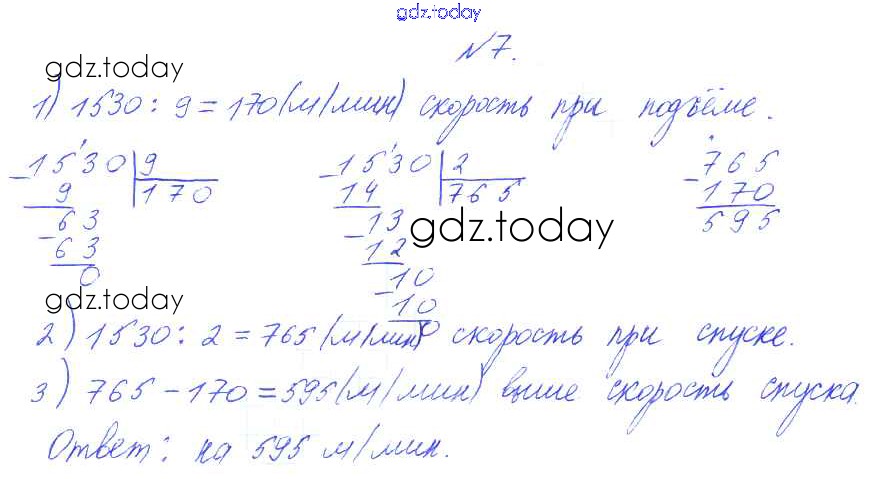 gdz.today
№7.
gdz.today
1) 1530 : 9 = 170 (м/мин) скорость при подъёме.
1530 | 9
- 9 | 170
63
- 63
0
1530 | 2
- 14 | 765
13
- 12
10
- 10
0
765
- 170
595
gdz.today
gdz.today
2) 1530 : 2 = 765 (м/мин) скорость при спуске.
3) 765 - 170 = 595 (м/мин) выше скорость спуска.
Ответ: на 595 м/мин.